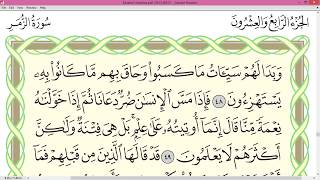 الجزء الرابع والعشرون
سورة الزمر
وَبَدَا لَهُمْ سَيِّـَٔاتُ مَا كَسَبُوا۟ وَحَاقَ بِهِم مَّا كَانُوا۟ بِهِۦ
يَسْتَهْزِءُونَ ٤٨ فَإِذَا مَسَّ ٱلْإِنسَٰنَ ضُرٌّ دَعَانَا ثُمَّ إِذَا خَوَّلْنَٰهُ
نِعْمَةً مِّنَّا قَالَ إِنَّمَآ أُوتِيتُهُۥ عَلَىٰ عِلْمٍۭ بَلْ هِىَ فِتْنَةٌ وَلَٰكِنَّ
أَكْثَرَهُمْ لَا يَعْلَمُونَ ٤٩ قَدْ قَالَهَا ٱلَّذِينَ مِن قَبْلِهِمْ فَمَآ